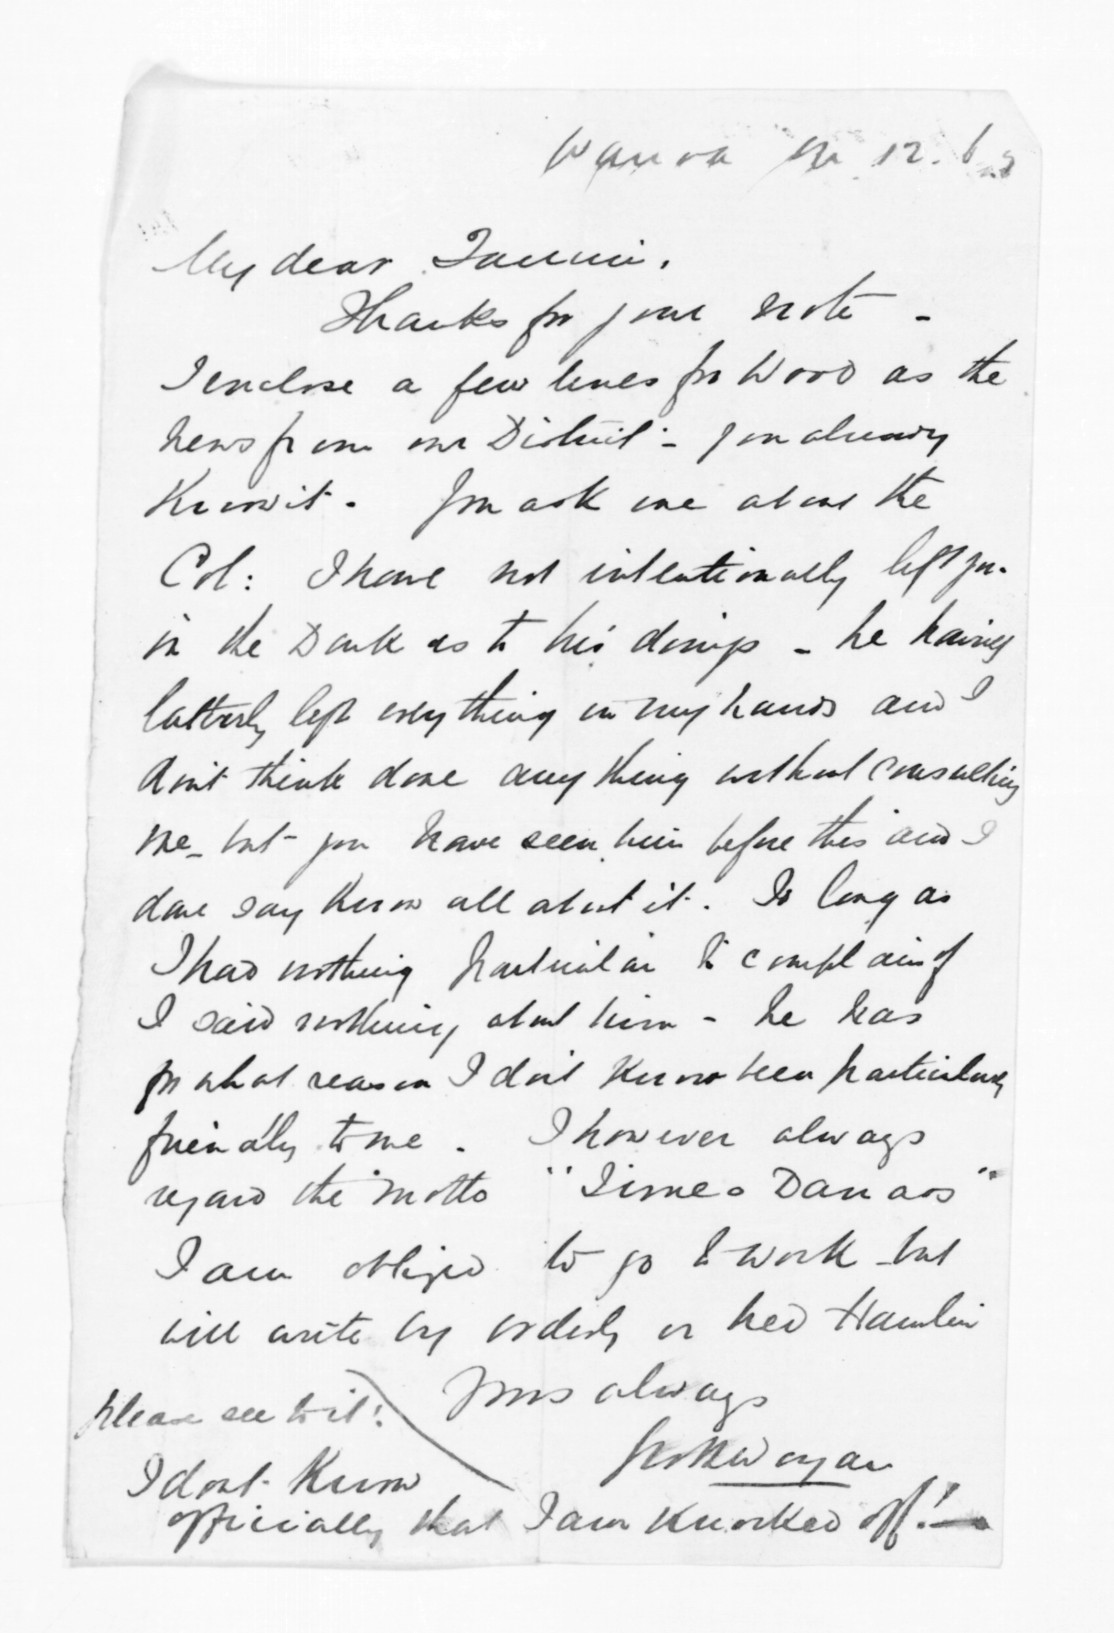 12. 6
My dear
Thanks for your note -
I enclose a few lines for Wood as the
news from our District - you already
Know it. You ask me about the
Col: I have not intentionally left you
in the Dark as to his doings - he having
latterly left everything in my hands and I
don't think done anything without consulting
me - but you have seen him before this and I
dare say Know all about it. So long as
I had nothing particular to complain of
I said nothing about him - he has
for what reason I don't Know been particularly
friendly to me. I however always
regard the motto "Timeo Danaos"
I am obliged to go to work but
will write by orderly or Hamlin
Yours always
please see to it!
I dont Know
officially that I am Knocked off! -